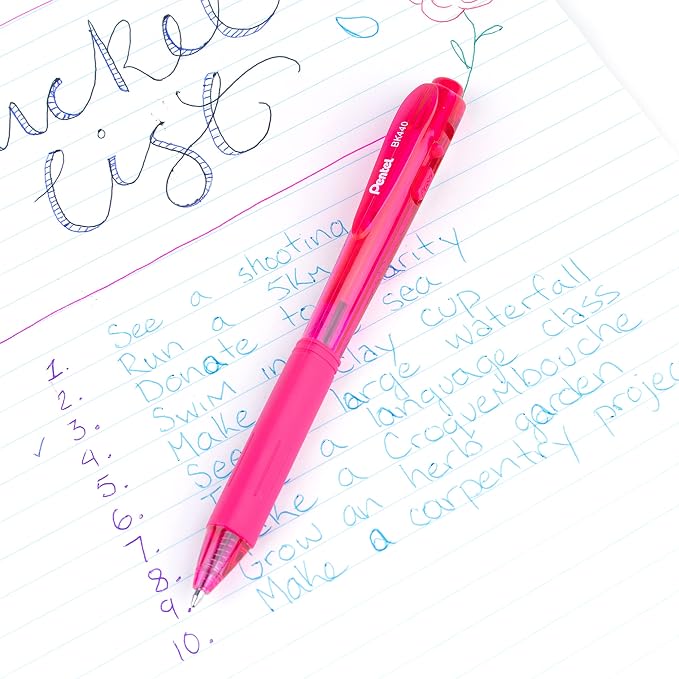 ucket
List
Pentel BK440
1. See a shooting
2. Run a 5km
3. Donate to arity
4. Swim in sea
5. Make lay cup
6. See large waterfall
7. a language class
8. ke a Croquembouche
9. Grow an herb garden
10. Make a carpentry projec